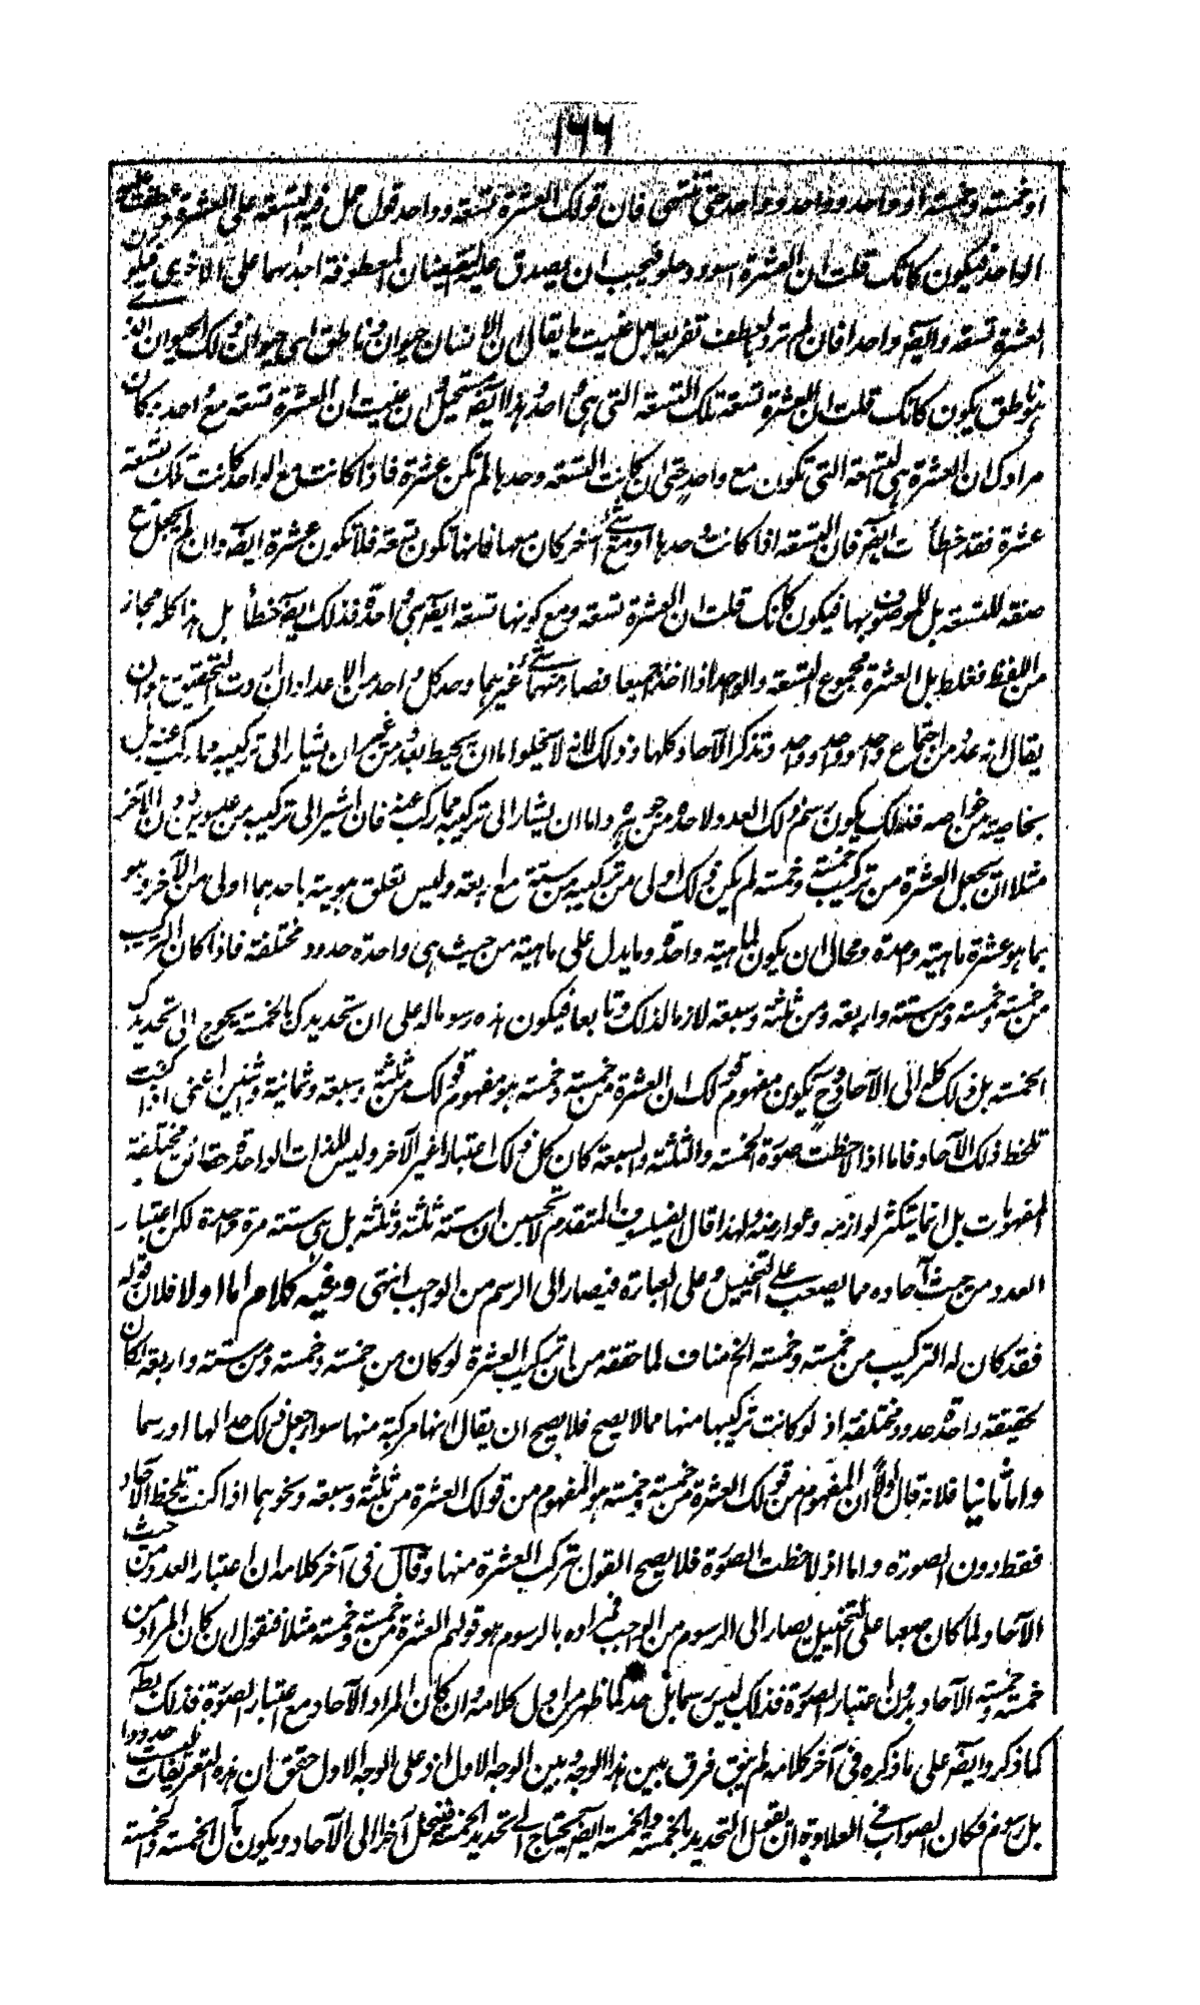 ١٦٦
او خمسة وخمسة او واحد وواحد وواحد حتى تنتهى فان قولك العشرة تسعة وواحد قول حمل فيه التسعة على العشرة وعطفت عليه
الواحد فيكون كانك قلت ان العشرة اسود وحلو فيجب ان يصدق عليه الصفتان المعطوفة احداهما على الاخرى فيكون
العشرة تسعة وايضا واحدا فان لم ترد بالعطف تعريفا بل عنيت ما يقال ان الانسان حيوان وناطق اى حيوان ذلك الحيوان الذى
هو ناطق يكون كانك قلت ان العشرة تسعة تلك التسعة التى هى واحد وهذا ايضا مستحيل وان عنيت ان العشرة تسعة مع واحد وكان
مرادك ان العشرة هى التسعة التى تكون مع واحد حتى ان كانت التسعة وحدها لم تكن عشرة فاذا كانت مع الواحد كانت تلك تسعة
عشرة فقد خطأت ايضا فان التسعة اذا كانت وحدها او مع شئ آخر كان معها فانها تكون تسعة فلا تكون عشرة ايضا وان لم تجعل مع
صفة للتسعة بل للموصوف بها فيكون كانك قلت ان العشرة تسعة ومع كونها تسعة ايضا هى واحدة فذلك ايضا خطأ بل هذا كله مجاز
من اللفظ مغلط بل العشرة مجموع التسعة والواحد اذا اخذا جميعا فصار منهما شئ غيرهما وحد كل واحد من الاعداد ان اردت التحقيق هو ان
يقال انه عدد من اجتماع واحد وواحد وواحد وتذكر الآحاد كلها وذلك لانه لا يخلوا ما ان يحيط بعدد من غير ان يشار الى تركيبه مما ركب عنه بل
بخاصية من خواصه فذلك يكون رسم ذلك العدد لا حده من جوهره واما ان يشار الى تركيبه مما ركب عنه فان اشير الى تركيب من عددين دون الآخر
مثلا ان تجعل العشرة من تركيب خمسة وخمسة لم يكن ذلك اولى من تركيب ستة مع اربعة وليس تعلق هويته باحدهما اولى من الآخر وهو
بما هو عشرة ماهية واحدة ومحال ان يكون لماهية واحدة وما يدل على ماهيته من حيث هى واحدة حدود مختلفة فاذا كان التركيب
من خمسة وخمسة ومن ستة واربعة ومن ثلثة وسبعة لازما لذلك وتابعا فيكون هذه رسوما له على ان تحديدك بالخمسة يحوج الى تحديد ك
الخمسة بل ذلك كله الى الآحاد وح يكون مفهوم قولك ان العشرة من خمسة وخمسة هو مفهوم قولك من ثلثة وسبعة وثمانية واثنين اعنى اذا كنت
تلحظ ذلك الآحاد فاما اذا لاحظت صورة الخمسة والثلثة والسبعة كان كل ذلك اعتبارا غير الآخر وليس للذات الواحدة حقائق مختلفة
المفهومات بل انما يتكثر لوازمه وعوارضه ولهذا قال الفيلسوف المتقدم لا تحسبن ان ستة ثلثة وثلثة بل هى ستة مرة واحدة لكن اعتبار
العدد من حيث آحاده مما يصعب على التخييل وعلى العبارة فيصار الى الرسم من الواجب انتهى وفيه كلام اما اولا فلان قوله
فقد كان له التركيب من خمسة وخمسة الخ مناف لما حققه من ان تركيب العشرة لو كان من خمسة وخمسة ومن ستة واربعة لكان
لحقيقة واحدة حدود مختلفة اذ لو كانت تركيبها منها مما لا يصح فلا يصح ان يقال انها مركبة منها سواء جعل ذلك حدا لها او رسما
واما ثانيا فلانه قال اولا ان المفهوم من قولك العشرة من خمسة وخمسة هو المفهوم من قولك العشرة من ثلثة وسبعة ونحوهما اذا كنت تلحظ الآحاد
فقط دون الصورة واما اذا لاحظت الصورة فلا يصح القول بتركب العشرة منها وقال فى آخر كلامه ان اعتبار العدد من حيث
الآحاد لما كان صعبا على التخييل يصار الى الرسوم من الواجب فمراده بالرسوم هو قولهم العشرة من خمسة وخمسة مثلا فنقول ان كان المراد من
خمسة وخمسة الآحاد بدون اعتبار الصورة فذلك ليس رسما بل حد كما ظهر من اول كلامه وان كان المراد الآحاد مع اعتبار الصورة فذلك بط
كما ذكر وايضا على ما ذكره فى آخر كلامه لم يبق فرق بين هذا الوجه وبين الوجه الاول اذ على الوجه الاول حقق ان هذه التعريفات ليست حدودا
بل رسوم فكان الصواب فى العلاوة ان يقول التحديد بالخمسة والخمسة ايضا يحتاج الى تحديد الخمسة فينحل آخرا الى الآحاد ويكون مآل الخمسة والخمسة